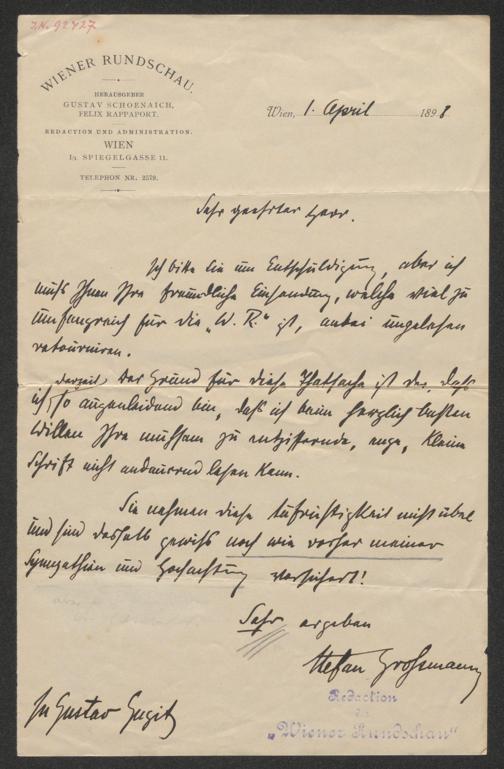 I.N. 92427
WIENER RUNDSCHAU.
HERAUSGEBER
GUSTAV SCHOENAICH,
FELIX RAPPAPORT.
REDACTION UND ADMINISTRATION.
WIEN
I/1 SPIEGELGASSE 11.
TELEPHON NR. 2579.
Wien, 1. April 1898
Sehr geehrter Herr.
Ich bitte Sie um Entschuldigung, aber ich
muß Ihnen Ihre freundliche Einsendung, welche viel zu
umfangreich für die „W. R." ist, anbei ungelesen
retourniren.
Der Grund für diese Thatsache ist der, daß
ich derzeit so augenleidend bin, daß ich beim herzlich besten
Willen Ihre mühsam zu entziffernde, enge, kleine
Schrift nicht andauernd lesen kann.
Sie nehmen diese Aufrichtigkeit nicht übel
und sind deshalb gewiß noch wie vorher meiner
Sympathien und Hochachtung versichert!
Sehr ergeben
Stefan Großmann
Redaction
der
„Wiener Rundschau"
Gustav Gugitz